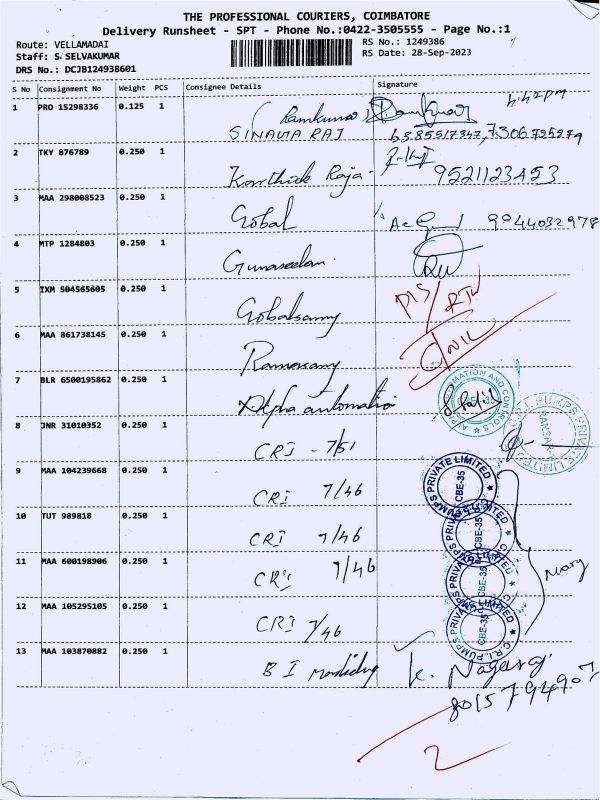 THE PROFESSIONAL COURIERS, COIMBATORE
Delivery Runsheet - SPT - Phone No.:0422-3505555 - Page No.:1
Route: VELLAMADAI
Staff: S. SELVAKUMAR
DRS No.: DCJB124938601
RS No.: 1249386
RS Date: 28-Sep-2023
S No Consignment No Weight PCS Consignee Details Signature
1 PRO 15298336 0.125 1
2 TKY 876789 0.250 1 Karthick Raja 9521123453
3 MAA 298008523 0.250 1 Gobal 9944032978
4 MTP 1284803 0.250 1 Gunaseelan
5 IXM 504565605 0.250 1 Gobalsamy DIS/RTN
6 MAA 861738145 0.250 1 Ramasamy
7 BLR 6500195862 0.250 1 Alpha automatio
8 JNR 31010352 0.250 1 CRI - 7/51
9 MAA 104239668 0.250 1 CRI 7/46
10 TUT 989818 0.250 1 CRI 7/46
11 MAA 600198906 0.250 1 CRI 7/46
12 MAA 105295105 0.250 1 CRI 7/46
13 MAA 103870882 0.250 1 B I K. Nagaraj
C.R.I. PUMPS PRIVATE LIMITED
CBE-35
Mary
2